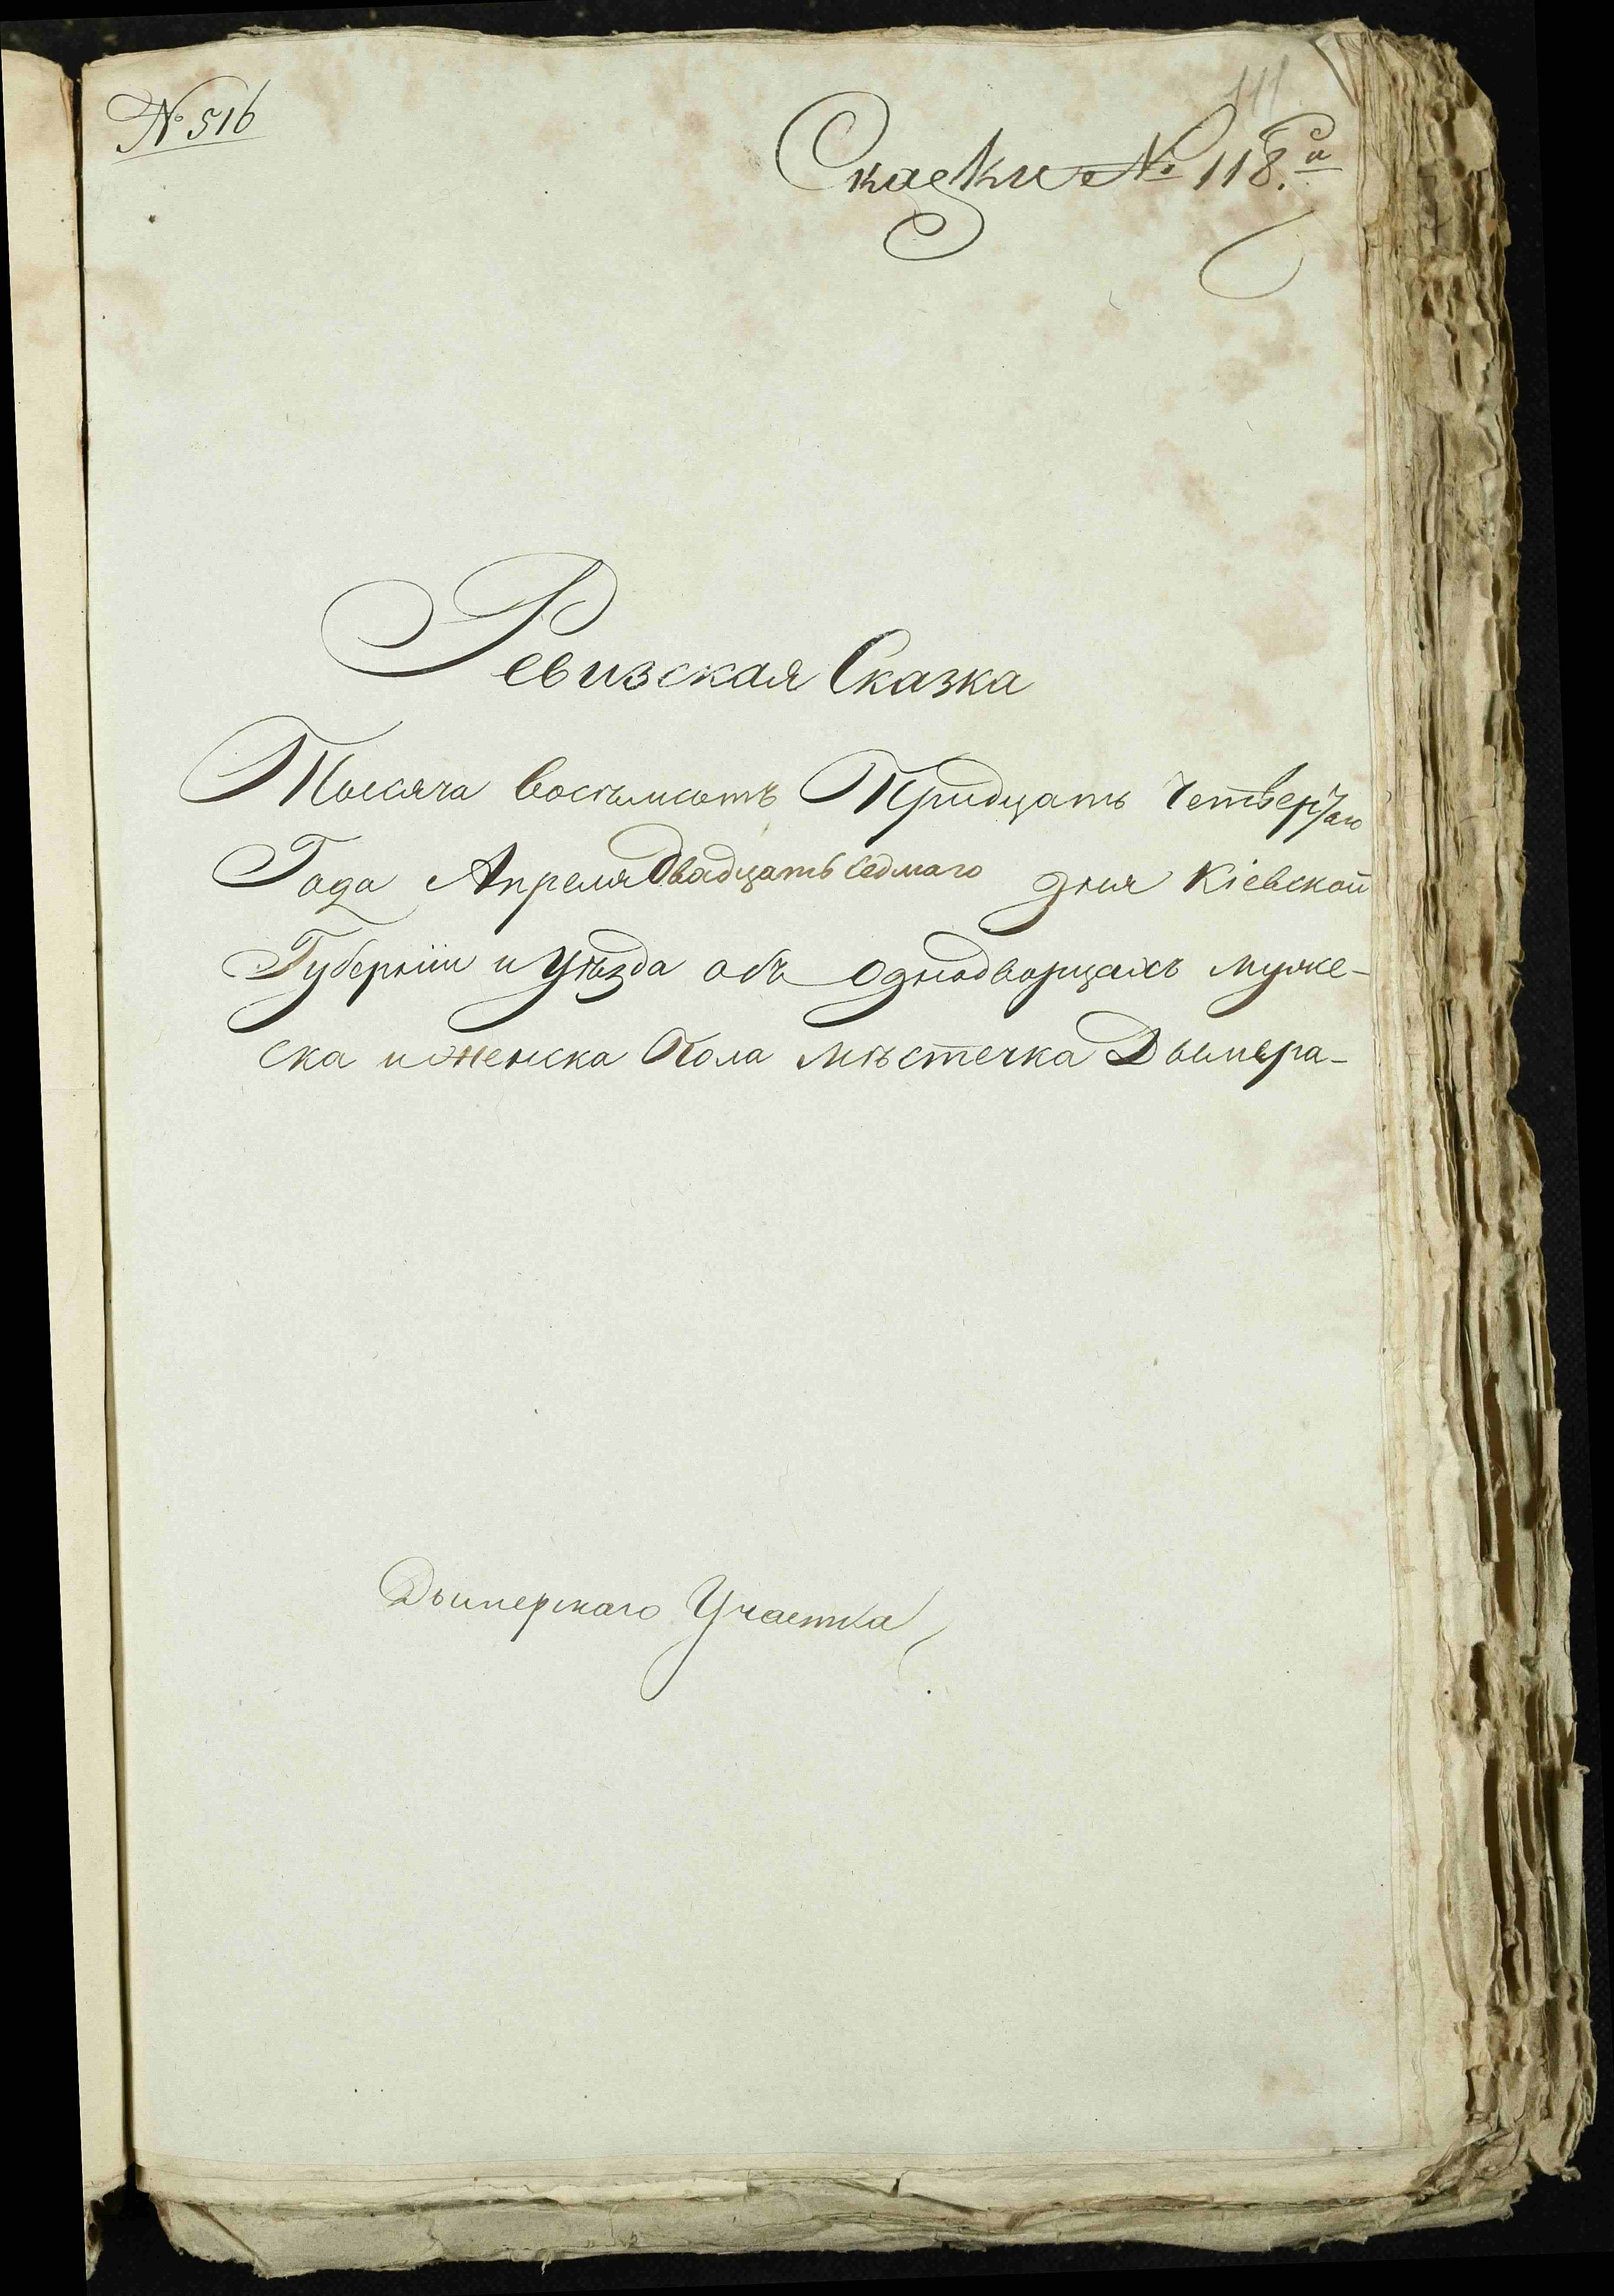 № 516
111
Сказки № 118.а
Ревизская Сказка
Тысяча восемьсотъ Тридцать Четвертаго
Года Апреля Двадцать седмаго дня Кіевской
Губерніи и Уѣзда объ однодворцахъ муже-
ска и женска Пола мѣстечка Дымера-
Дымерскаго Участка